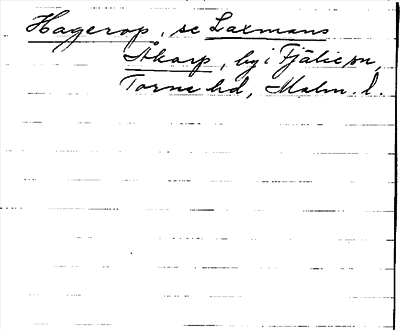 Hagerop, se Laxmans
Åkarp, by i Fjälie sn,
Torna hd, Malm. l.